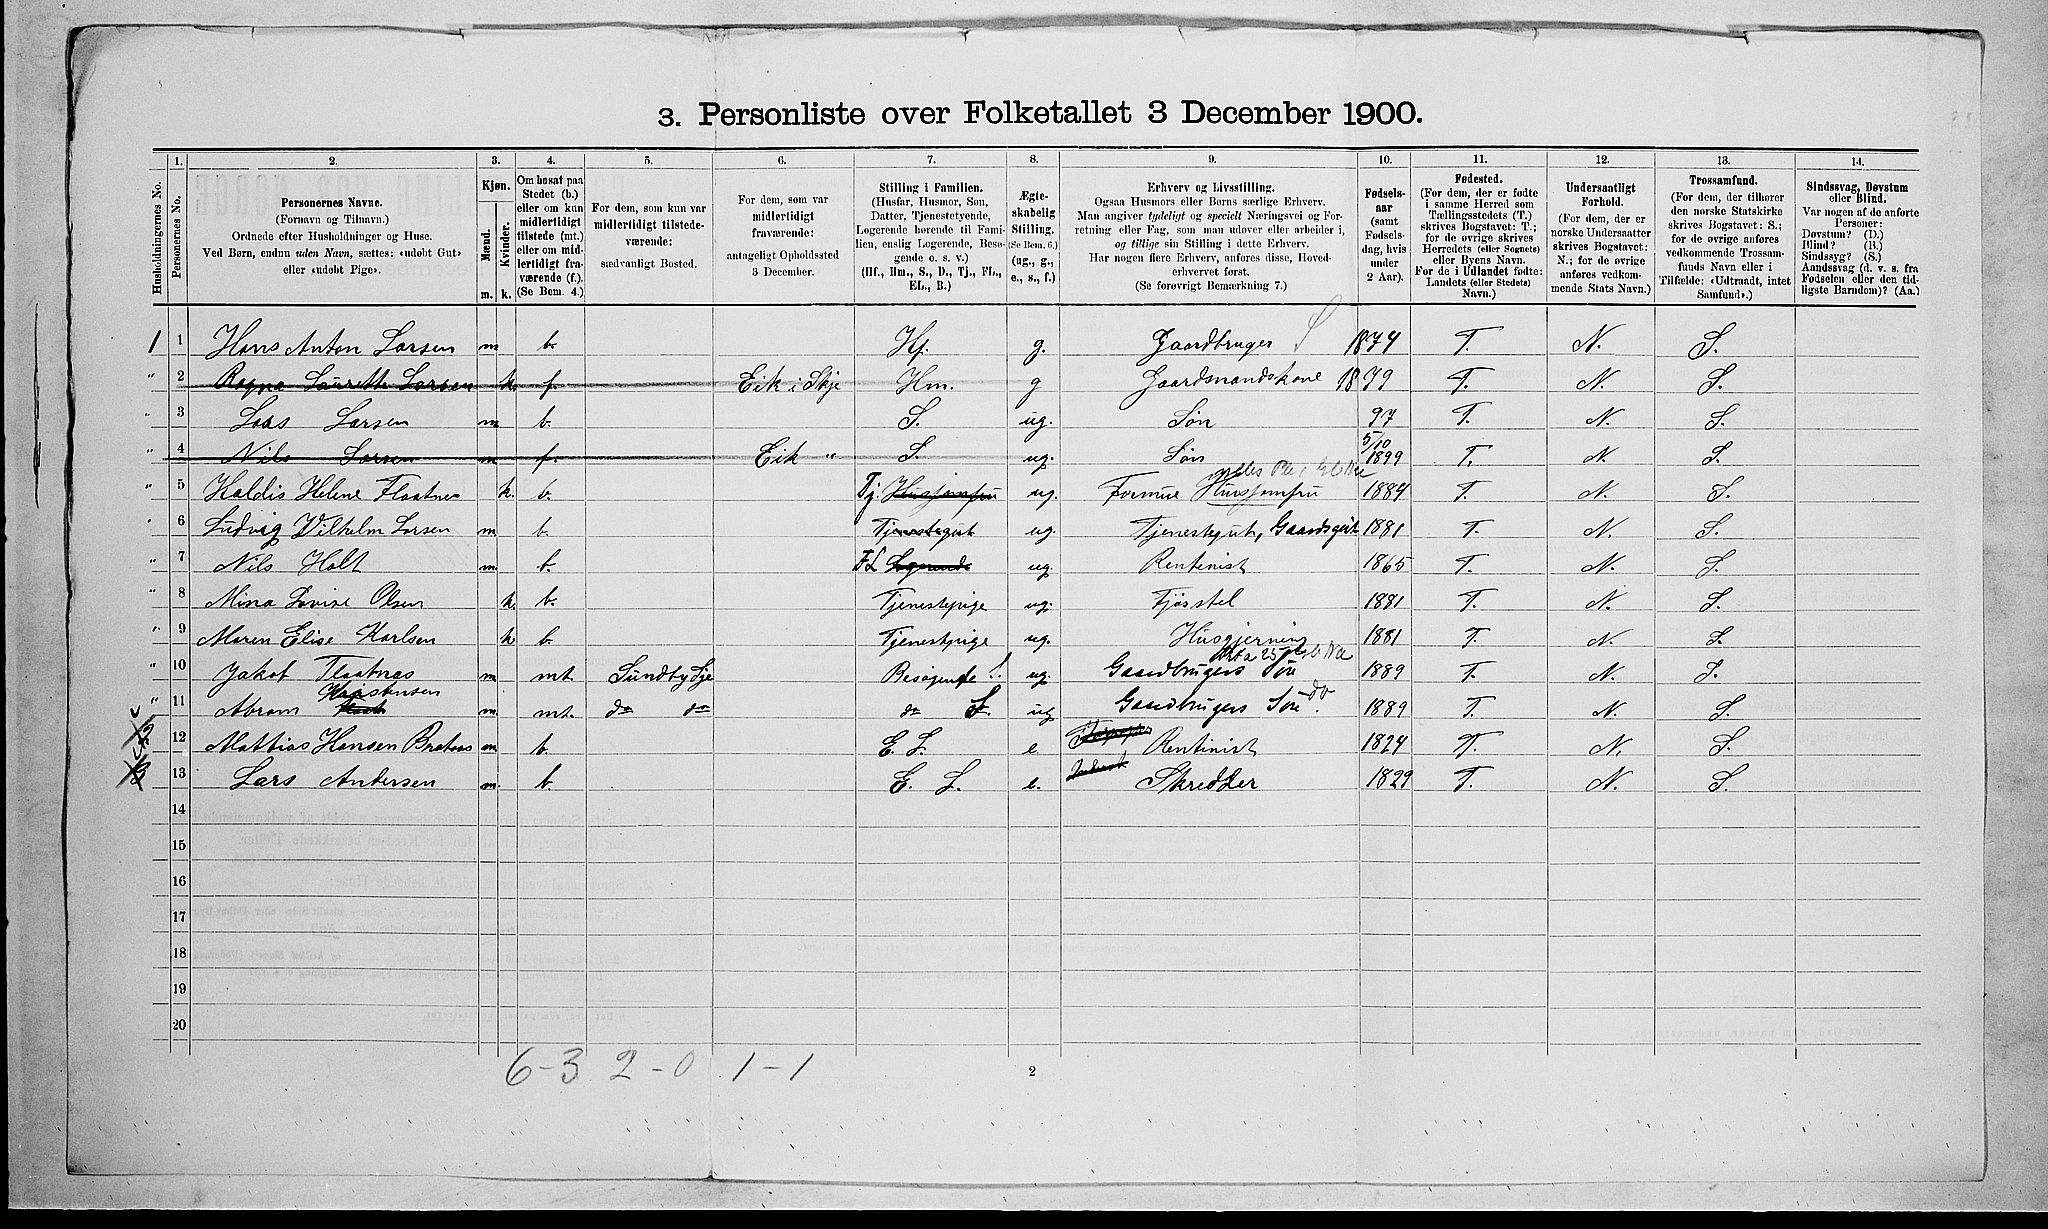 3. Personliste over Folketallet 3 December 1900.
1. 2. 3. 4. 5. 6. 7. 8. 9. 10. 11. 12. 13. 14.
Husholdningernes No.
Personernes No.
Personernes Navne.
(Fornavn og Tilnavn.)
Ordnede efter Husholdninger og Huse.
Ved Børn, endnu uden Navn, sættes: «udøbt Gut»
eller «udøbt Pige».
Kjøn.
Mænd.
Kvinder.
m. k.
Om bosat paa
Stedet (b.)
eller om kun
midlertidigt
tilstede (mt.)
eller om mid-
lertidigt fra-
værende (f.).
(Se Bem. 4.)
For dem, som kun var
midlertidigt tilstede-
værende:
sædvanligt Bosted.
For dem, som var
midlertidigt
fraværende:
antageligt Opholdssted
3 December.
Stilling i Familien.
(Husfar, Husmor, Søn,
Datter, Tjenestetyende,
Logerende hørende til Fami-
lien, enslig Logerende, Besø-
gende o. s. v.)
(Hf., Hm., S., D., Tj., FL.,
EL., B.)
Ægte-
skabelig
Stilling.
(Se Bem. 6.)
(ug., g.,
e., s., f.)
Erhverv og Livsstilling.
Ogsaa Husmors eller Børns særlige Erhverv.
Man angiver tydeligt og specielt Næringsvei og For-
retning eller Fag, som man udøver eller arbeider i,
og tillige sin Stilling i dette Erhverv.
Har nogen flere Erhverv, anføres disse, Hoved-
erhvervet først.
(Se forøvrigt Bemærkning 7.)
Fødsels-
aar
(samt
Fødsels-
dag, hvis
under
2 Aar).
Fødested.
(For dem, der er fødte
i samme Herred som
Tællingsstedets (T.)
skrives Bogstavet: T.;
for de øvrige skrives
Herredets (eller Sognets)
eller Byens Navn.
For de i Udlandet fødte:
Landets (eller Stedets)
Navn.)
Undersaatligt
Forhold.
(For dem, der er
norske Undersaatter
skrives Bogstavet:
N.; for de øvrige
anføres vedkom-
mende Stats Navn.)
Trossamfund.
(For dem, der tilhører
den norske Statskirke
skrives Bogstavet: S.;
for de øvrige anføres
vedkommende Trossam-
funds Navn eller i
Tilfælde: «Udtraadt, intet
Samfund».)
Sindssvag, Døvstum
eller Blind.
Var nogen af de anførte
Personer:
Døvstum? (D.)
Blind? (B.)
Sindssyg? (S.)
Aandssvag (d. v. s. fra
Fødselen eller den tid-
ligste Barndom)? (Aa.)
1 1 Hans Anton Larsen m b. Hf. g. Gaardbruger 1874 T. N. S.
" 2 Ragna Laurette Larsen k. f. Eik i Skje Hm. g Gaardmandskone 1879 T. N. S.
" 3 Lars Larsen m b. S. ug. Søn 97 T. N. S.
" 4 Nils Larsen m f. Eik " S. ug. Søn 5/10 1899 T. N. S.
" 5 Haldis Helene Flaatnes k. b. Tj. Husjomfru ug. Formue Husjomfru 1884 T. N. S.
" 6 Ludvig Vilhelm Larsen m b. Tjenestegut ug. Tjenestegut, Gaardsgut 1881 T. N. S.
" 7 Nils Holt m. b. FL Logerende ug. Rentenist 1865 T. N. S.
" 8 Mina Lovise Olsen k. b. Tjenestepige ug. Fjøsstel 1881 T. N. S.
" 9 Maren Elise Karlsen k b. Tjenestpige ug. Husgjerning 1881 T. N. S.
" 10 Jakob Flaatnes m mt. Sundby Skje Besøgende S. ug. Gaardbrugers Søn 1889 T. N. S.
" 11 Abram Kristensen m. mt. do do do S. ug Gaardbrugers Søn do 1889 T. N. S.
12 Mattias Hansen Bretnes m b. E. L. e Rentinist 1824 T. N. S.
13 Lars Andersen m. b. E. L. e. Skredder 1829 T. N. S.
14
15
16
17
18
19
20
6-3 2-0 1-1
2